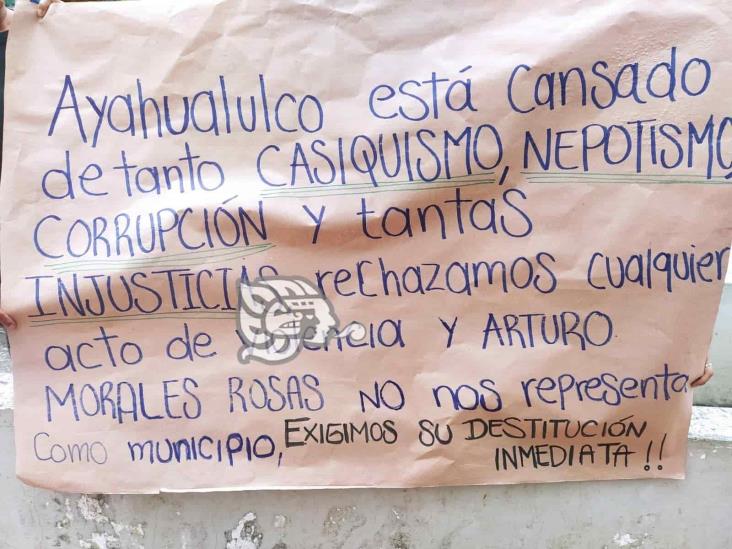 Ayahualulco está cansado
de tanto CASIQUISMO, NEPOTISMO,
CORRUPCIÓN y tantas
INJUSTICIAS rechazamos cualquier
acto de violencia Y ARTURO
MORALES ROSAS NO nos representa
como municipio, EXIGIMOS SU DESTITUCIÓN
INMEDIATA !!